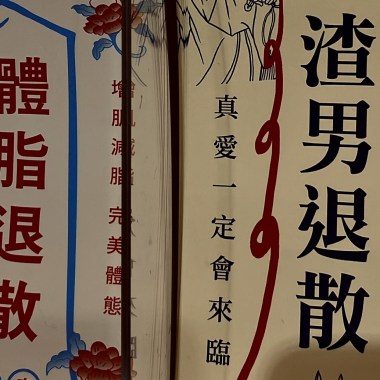 渣男退散
真愛一定會來臨
增肌減脂 完美體態
體脂退散